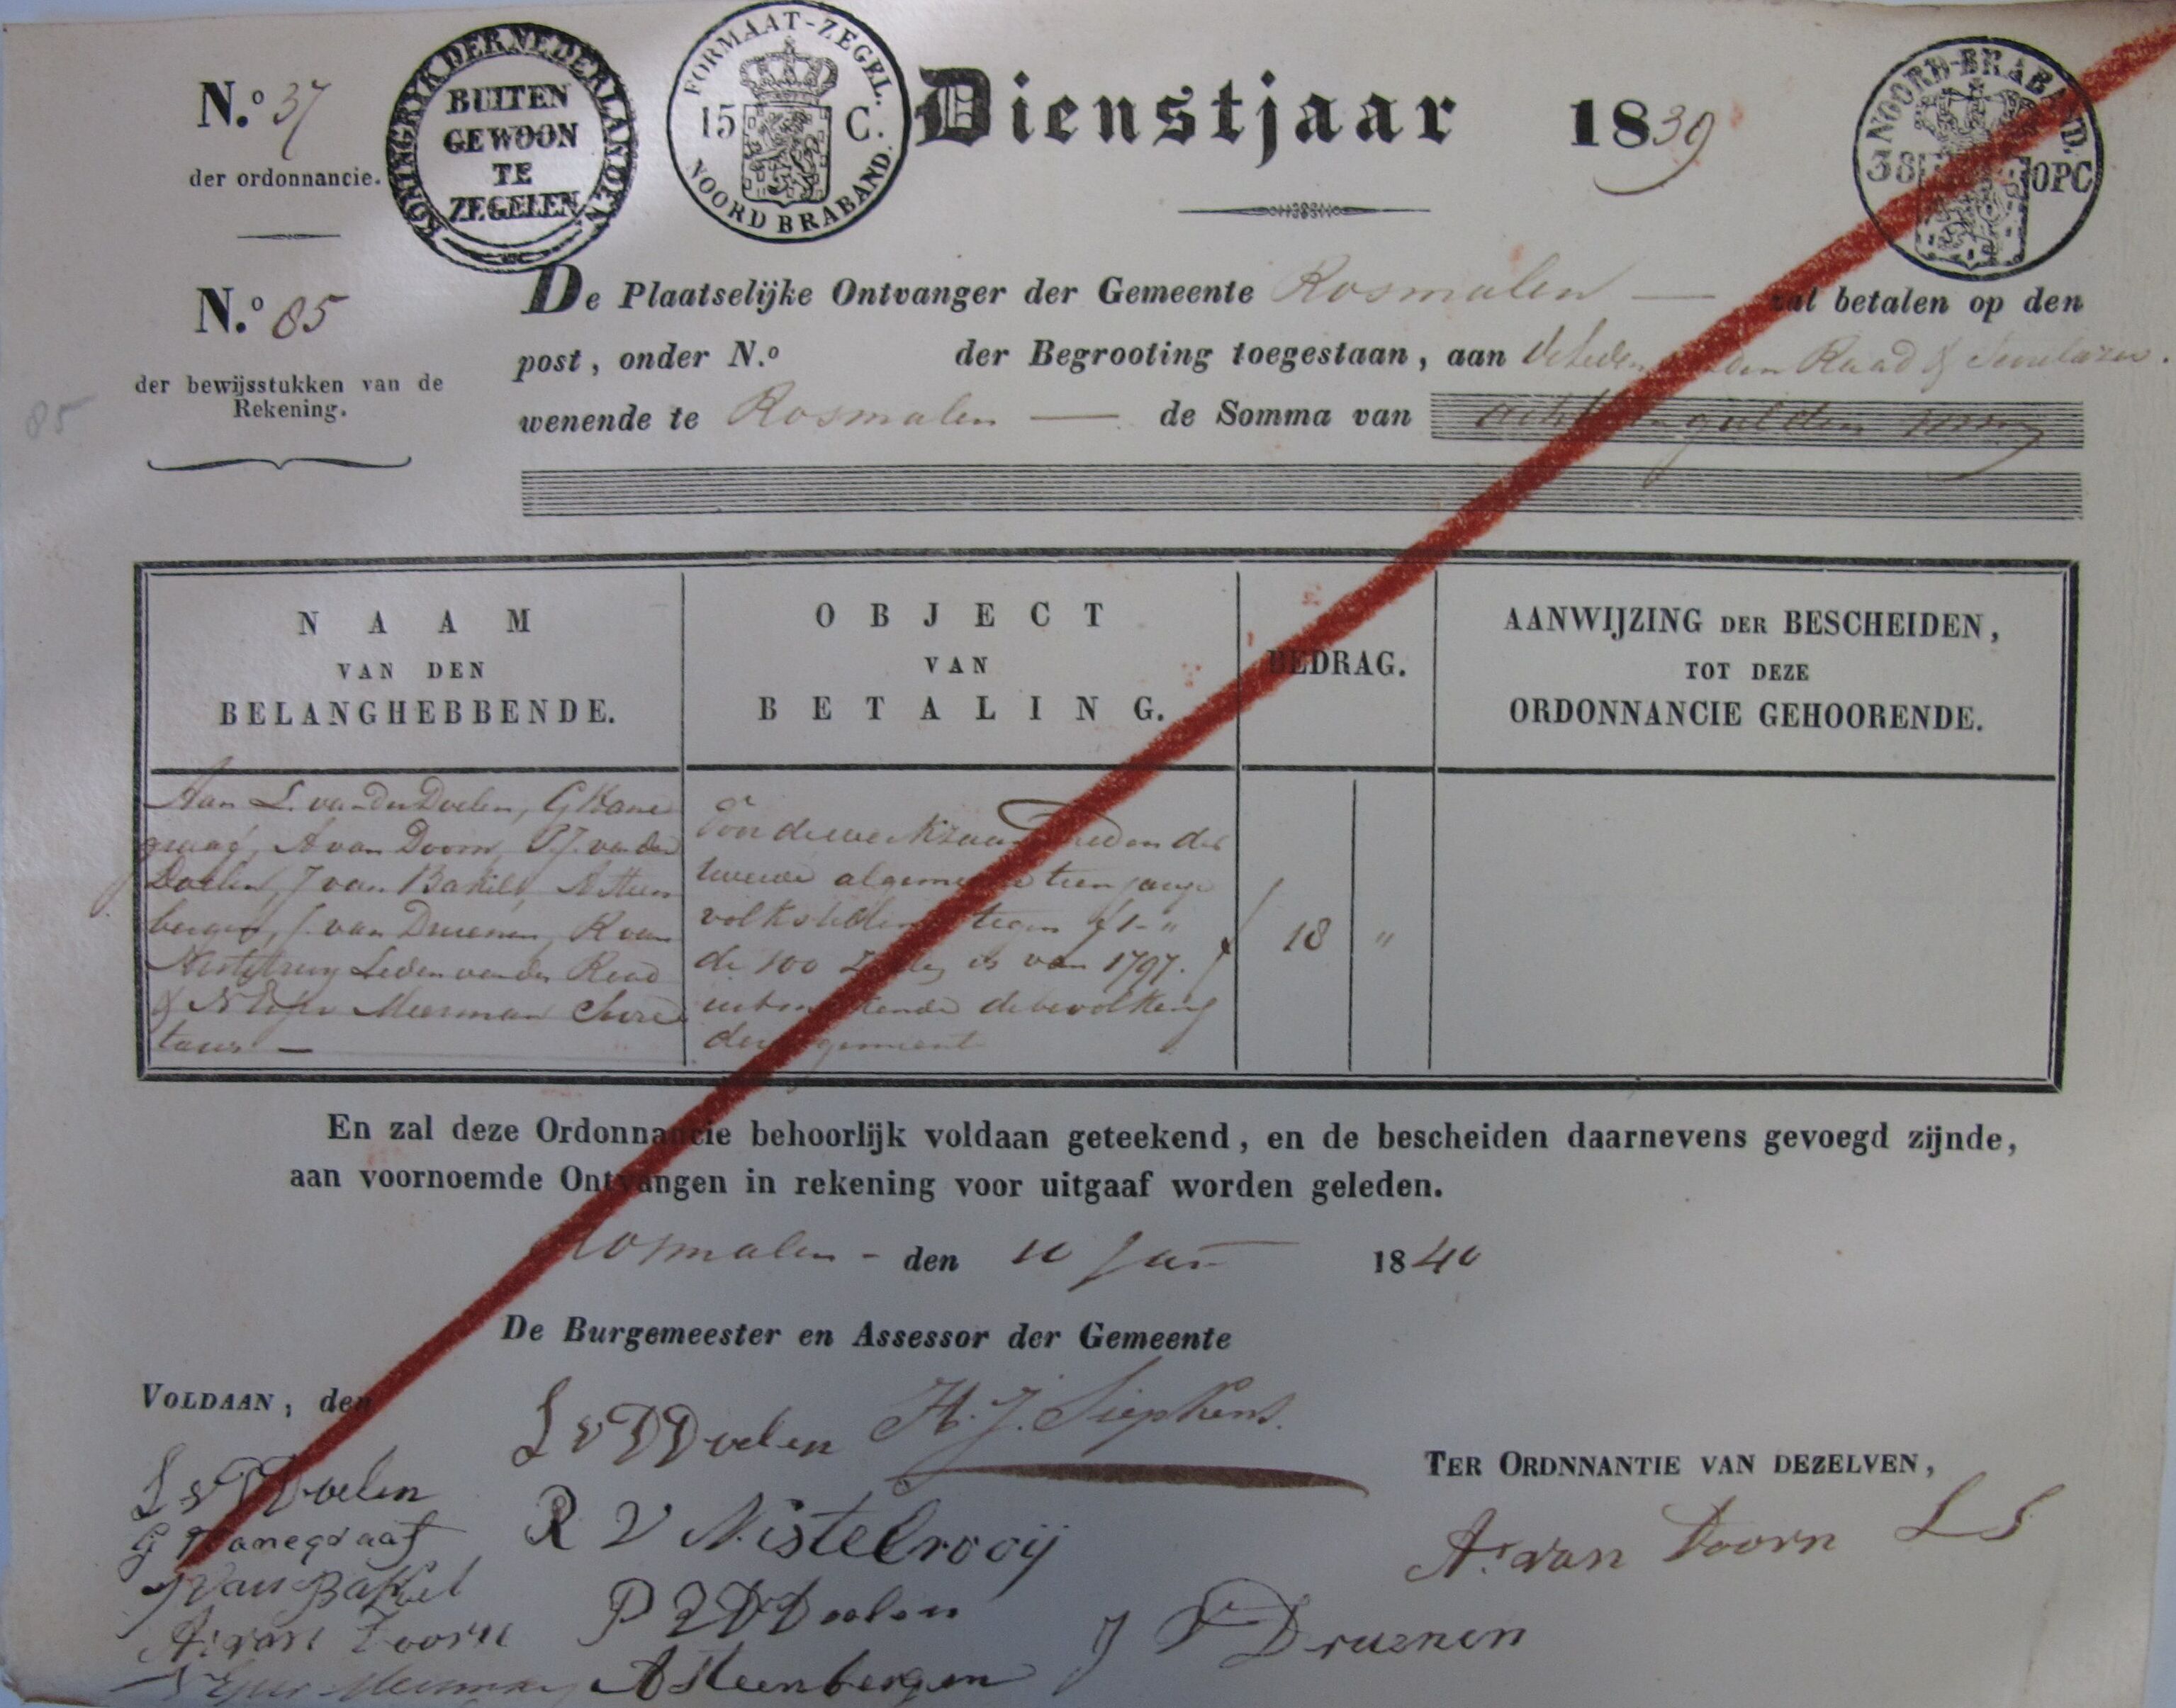 N.º 37
der ordonnancie.
KONINGRYK DER NEDERLANDEN
BUITEN
GEWOON
TE
ZEGELEN
FORMAAT-ZEGEL.
15 C.
NOORD BRABAND.
Dienstjaar 1839
NOORD-BRABAND.
38 OPC
N.º 85
der bewijsstukken van de
Rekening.
85
De Plaatselijke Ontvanger der Gemeente Rosmalen — zal betalen op den
post, onder N.º der Begrooting toegestaan, aan de Leden van den Raad & Secretaris.
wenende te Rosmalen — de Somma van achttien gulden
NAAM
VAN DEN
BELANGHEBBENDE.
OBJECT
VAN
BETALING.
BEDRAG.
AANWIJZING DER BESCHEIDEN,
TOT DEZE
ORDONNANCIE GEHOORENDE.
Aan L. van der Doelen, G Hane
graaf, A van Doorn, P.J. van der
Doelen, J van Bakel, A Steen
bergen, J. van Druenen, R van
Nistelrooy Leden van den Raad
& Meerman Secre
taris —
Voor de werkzaamheden der
tweede algemeene tienjarige
volkstelling tegen f 1 - "
de 100 Zielen is van 1797.
uitmakende de bevolking
dezer gemeente
18 "
En zal deze Ordonnancie behoorlijk voldaan geteekend, en de bescheiden daarnevens gevoegd zijnde,
aan voornoemde Ontvangen in rekening voor uitgaaf worden geleden.
Rosmalen - den 10 Jan 1840
De Burgemeester en Assessor der Gemeente
VOLDAAN, den
L v D Doelen H. J. Siephens.
TER ORDNNANTIE VAN DEZELVEN,
L v D Doelen
G Hanegraaf
R V Nistelrooij
A. van Doorn L S
J Van Bakel
P J V D Doelen
J V Druenen
A. van Doorn
Meerman
A Steenbergen